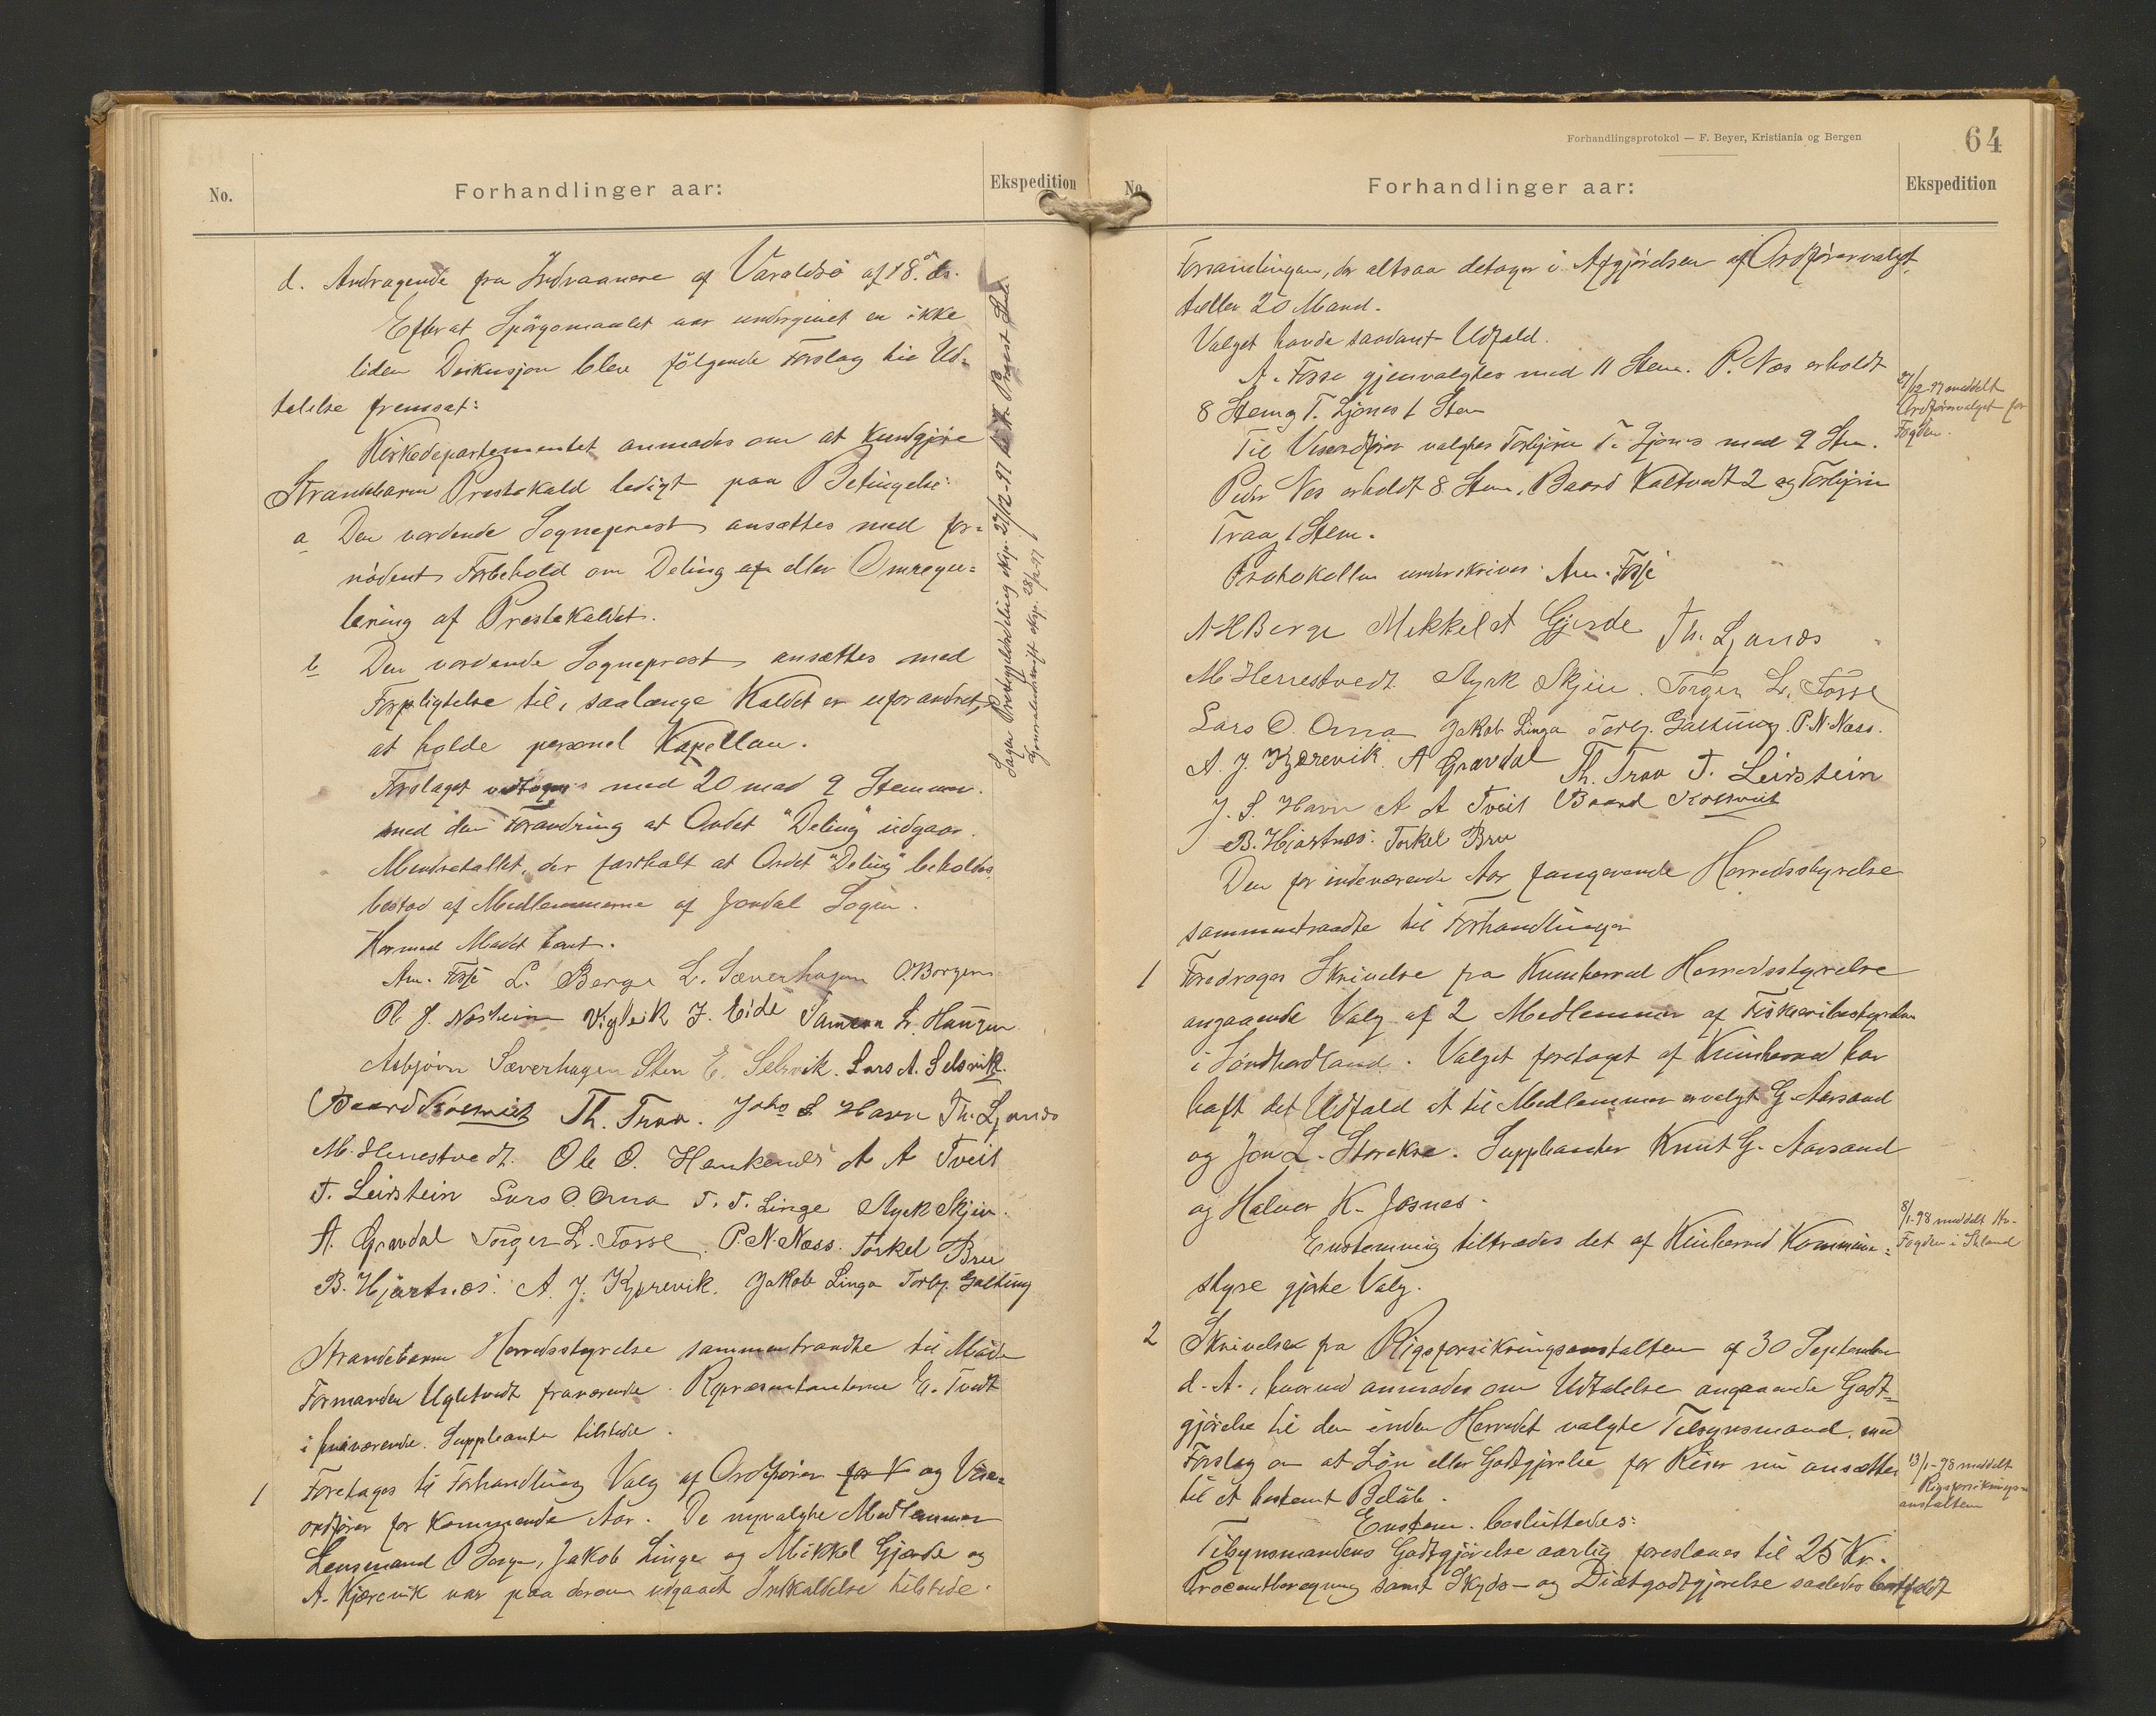 No.
Forhandlinger aar:
Ekspedition
d. Andragende fra Indvaanere af Varaldsö af 18. ds.
Efterat Spörgsmaalet var undergivet en ikke
liden Diskusjon blev fölgende Forslag til Ud=
talelse fremsat:
Kirkedepartementet anmodes om at kundgjöre
Strandebarm Prestekald ledigt paa Betingelse:
a Den vordende Sogneprest ansættes med for=
nödent Forbehold om Deling af eller Omregu=
lering af Prestekaldet.
b Den vordende Sogneprest ansættes med
Forpligtelse til, saalænge Kaldet er uforandret,
at holde personel Kapellan.
Forslaget vedtoges med 20 mod 9 Stemmer.
med den Forandring at Ordet "Deling" udgaar.
Mindretallet, der fastholt at Ordet "Deling" beholdes,
bestod af Medlemmerne af Jondal Sogn.
Hermed Mödet hævt.
Am. Fosse L. Berge L. Sæverhagen O. Borgen
Ol J. Vigleik J. Eide Samson L. Haugen
Asbjörn Sæverhagen Sten E. Selsvik. Lars A. Selsvik.
Baard Th. Traa. Joh S Havn Th. Ljones
M. Herrestvedt. Ole O. A A Tveit
T. Leirstein Lars O. Oma T. T. Linge Styrk Skjen.
A. Gravdal Torger L. Fosse. P. N. Næss. Torkel Bru
B. Hjartnes. A. J. Kjerevik. Jakob Linga Torbj. Galtung
Sagen ekp. 27/12-97
ekp. 28/12-97
Strandebarm Herredsstyrelse sammentraadte til Möde
Formanden Ugletvedt fraværende. Repræsentanterne E. Tvedt
i fraværende. Suppleanter tilstede.
1 Foretages til Forhandling Valg af Ordförer for V og Vise=
ordförer for kommende Aar. De nyvalgte Medlemmer
Lensmand Borgen, Jakob Linga og Mikkel Gjerde og
A. Kjærevik var paa derom udgaaet Indkaldelse tilstede.
Forhandlingsprotokol — F. Beyer, Kristiania og Bergen
64
No.
Forhandlinger aar:
Ekspedition
Forsamlingen, der altsaa detager i Afgjörelsen af Ordförervalget,
tæller 20 Mand.
Valget havde saadant Udfald.
A. Fosse gjenvalgtes med 11 Stem. P. Nes erholdt
8 Stem og T. Ljones 1 Stem
27/12-97 meddelt
Ordförervalget for
Fogden.
Til Viseordförer valgtes Torbjörn T. Ljones med 9 Stem.
Peder Nes erholdt 8 Stem, Baard Kaltvedt 2 og Torbjörn
Traa 1 Stem.
Protokollen underskrives: Am. Fosse
N H Berge Mekkel A Gjerde Th. Ljones
M. Herrestvedt. Styrk Skjen. Torger L. Fosse
Lars O. Oma Jakob Linga Torbj. Galtung. P. N. Næss.
A. J. Kjerevik. A Gravdal Th. Traa T. Leirstein
J. S. Havn A A Tveit Baard
B. Hjartnes. Torkel Bru
Den for indeværende Aar fungerende Herredsstyrelse
sammentraadte til Forhandlinger
1 Foredroges Skrivelse fra Kvinherred Herredsstyrelse
angaaende Valg af 2 Medlemmer af Fiskeribestyrelsen
i Söndhordland. Valget foretaget af Kvinherred har
haft det Udfald at til Medlemmer er valgt G. Aarsand
og Jon L. Suppleanter Knut G. Aarsand
og Halvor K. Jøsnes.
Enstemmig tiltrædes det af Kvinherred Kommune=
styre gjorte Valg.
8/1-98 meddelt Hr.
Fogden i Shland
2 Skrivelse fra Rigsforsikringsanstalten af 30 September
d. A., hvorved anmodes om Udtalelse angaaende Godt=
gjörelse til den inden Herredet valgte Tilsynsmand, med
Forslag om at Lön eller Godtgjörelse for Reiser nu ansættes
til et bestemt Belöb.
13/1-98 meddelt
Rigsforsikrings=
anstalten
Enstem. besluttedes:
Tilsynsmandens Godtgjörelse aarlig foreslaaes til 25 Kr.
Procentberegning samt Skyds- og Diætgodtgjörelse saaledes bortfaldt